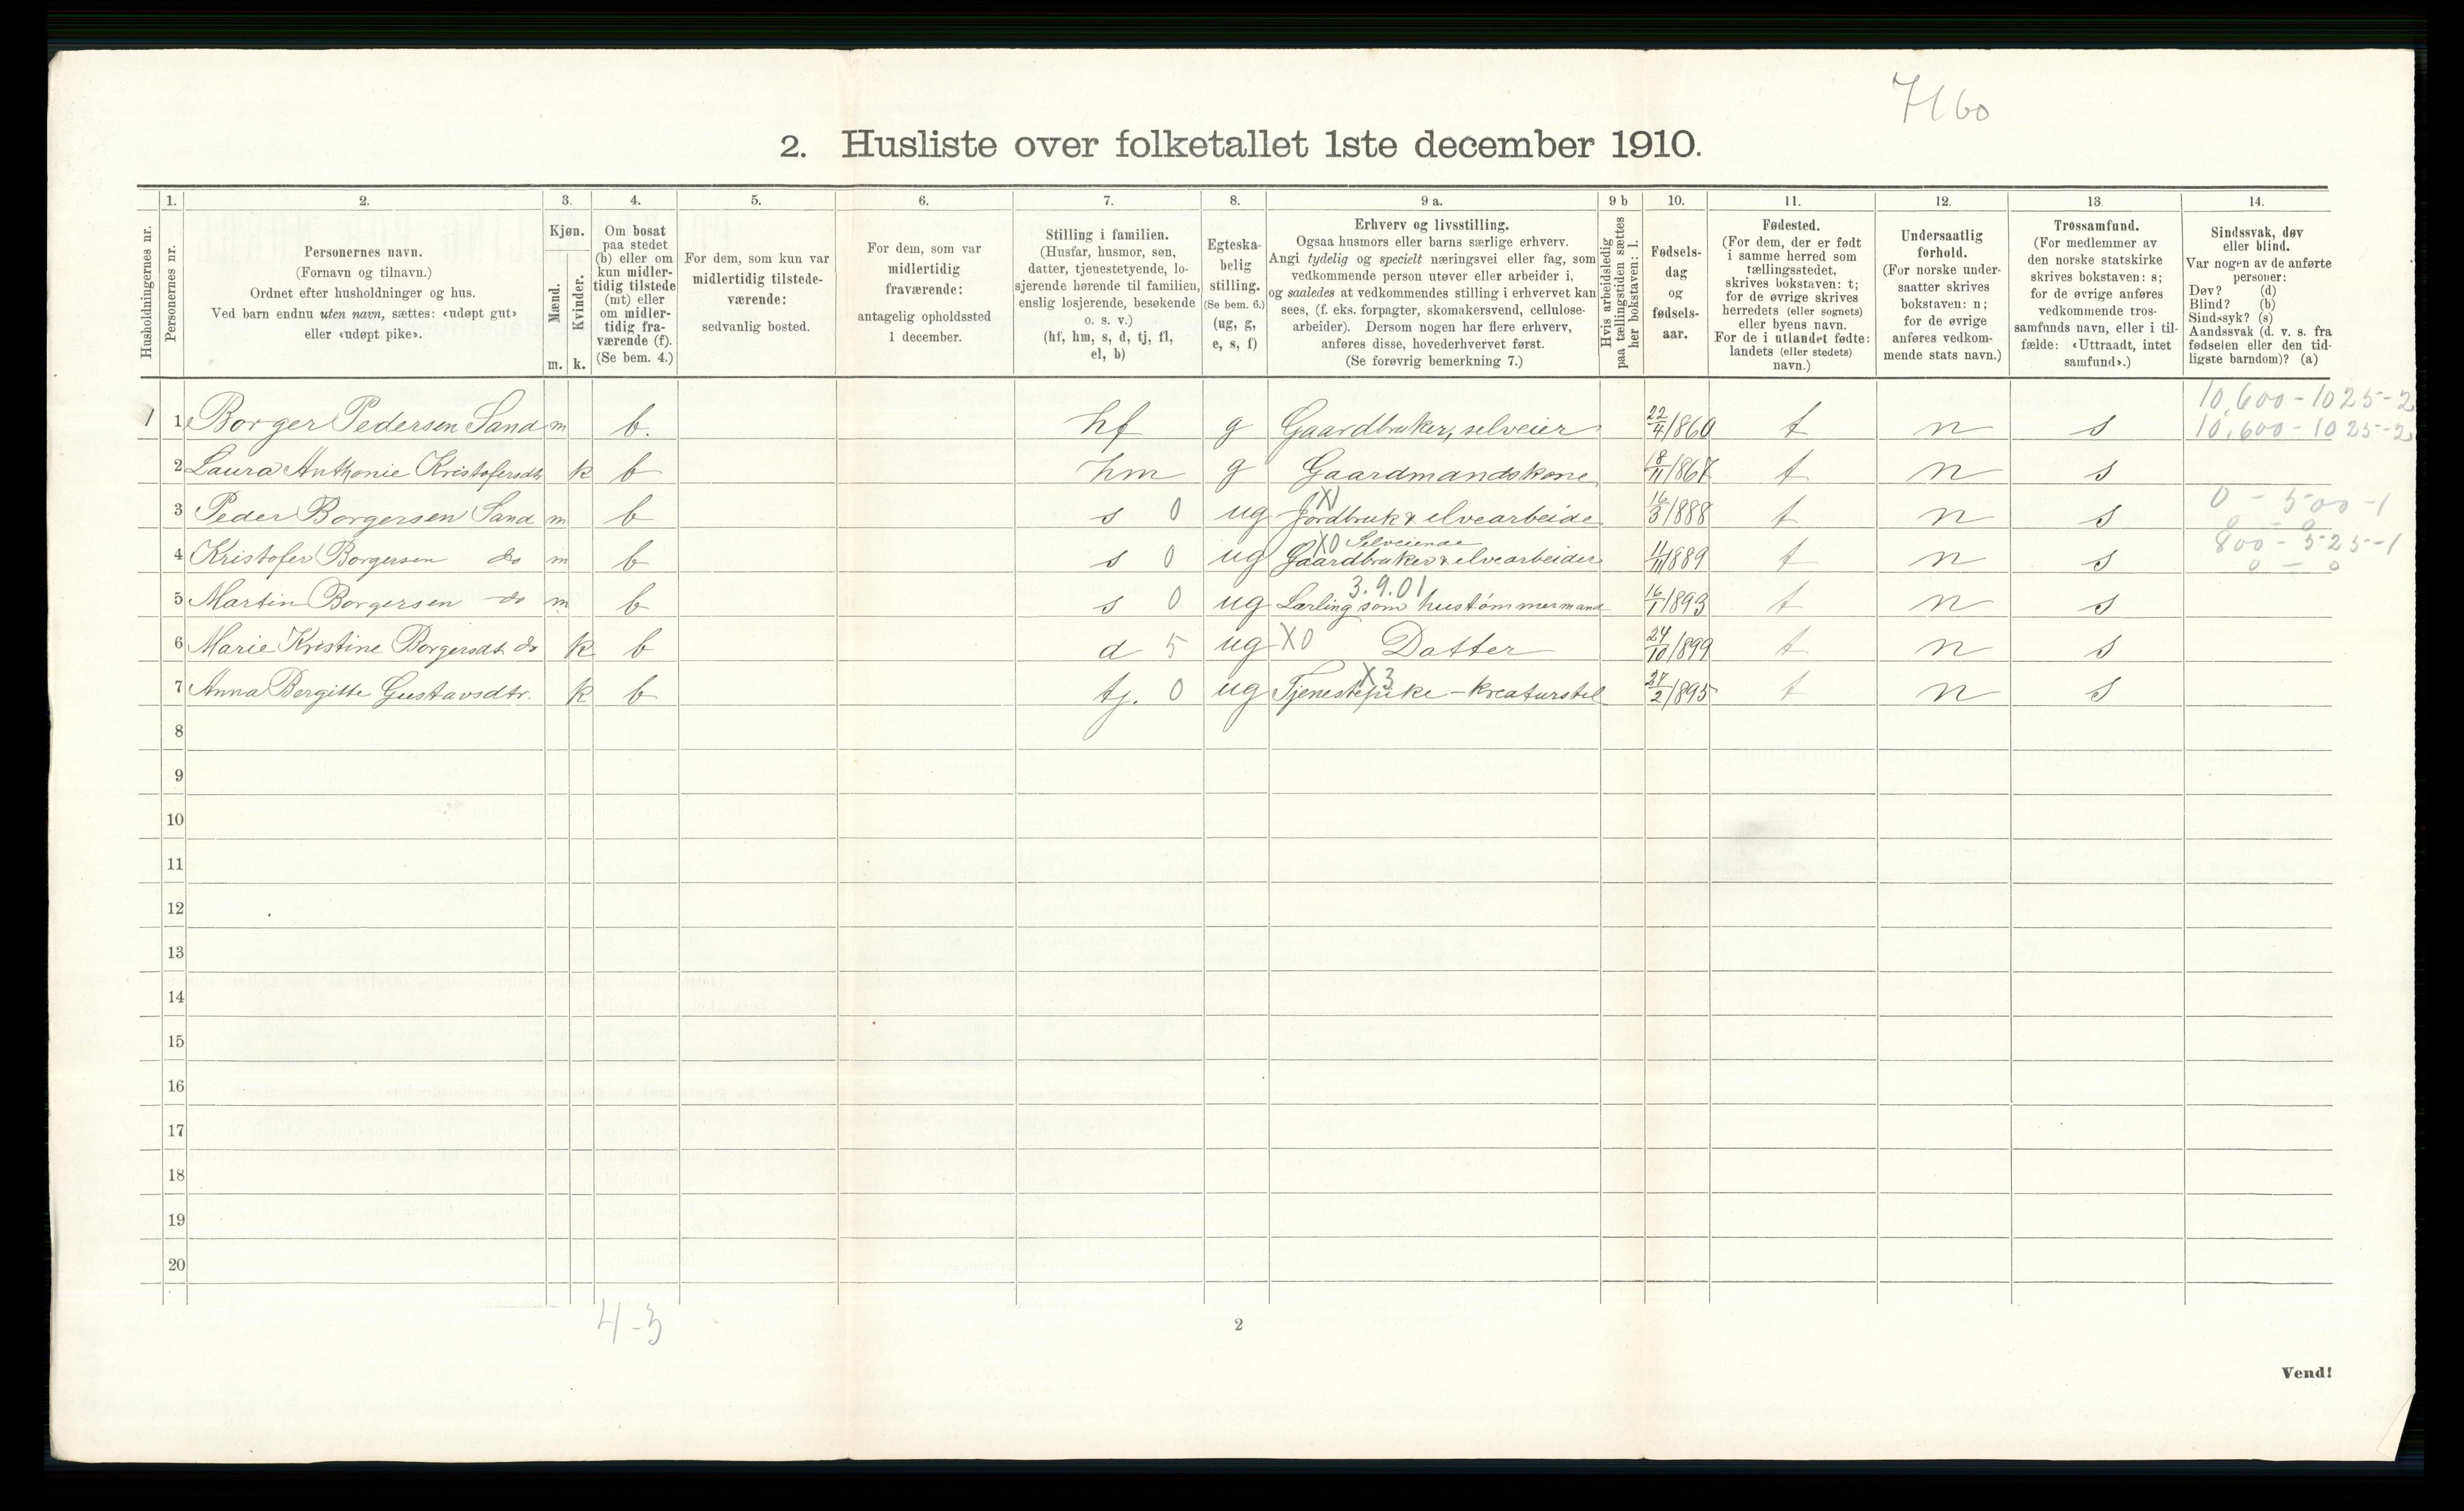 7160
2. Husliste over folketallet 1ste december 1910.
1. 2. 3. 4. 5. 6. 7. 8. 9 a. 9 b 10. 11. 12. 13 14.
Husholdningernes nr.
Personernes nr.
Personernes navn.
(Fornavn og tilnavn.)
Ordnet efter husholdninger og hus.
Ved barn endnu uten navn, sættes: «udøpt gut»
eller «udøpt pike».
Kjøn.
Mænd.
Kvinder.
m. k.
Om bosat
paa stedet
(b) eller om
kun midler-
tidig tilstede
(mt) eller
om midler-
tidig fra-
værende (f).
(Se bem. 4.)
For dem, som kun var
midlertidig tilstede-
værende:
sedvanlig bosted.
For dem, som var
midlertidig
fraværende:
antagelig opholdssted
1 december.
Stilling i familien.
(Husfar, husmor, søn,
datter, tjenestetyende, lo-
sjerende hørende til familien,
enslig losjerende, besøkende
o. s. v.)
(hf, hm, s, d, tj, fl,
el, b)
Egteska-
belig
stilling.
(Se bem. 6.)
(ug, g,
e, s, f)
Erhverv og livsstilling.
Ogsaa husmors eller barns særlige erhverv.
Angi tydelig og specielt næringsvei eller fag, som
vedkommende person utøver eller arbeider i,
og saaledes at vedkommendes stilling i erhvervet kan
sees, (f. eks. forpagter, skomakersvend, cellulose-
arbeider). Dersom nogen har flere erhverv,
anføres disse, hovederhvervet først.
(Se forøvrig bemerkning 7.)
Hvis arbeidsledig
paa tællingstiden sættes
her bokstaven: l.
Fødsels-
dag
og
fødsels-
aar.
Fødested.
(For dem, der er født
i samme herred som
tællingsstedet,
skrives bokstaven: t;
for de øvrige skrives
herredets (eller sognets)
eller byens navn.
For de i utlandet fødte:
landets (eller stedets)
navn.)
Undersaatlig
forhold.
(For norske under-
saatter skrives
bokstaven: n;
for de øvrige
anføres vedkom-
mende stats navn.)
Trossamfund.
(For medlemmer av
den norske statskirke
skrives bokstaven: s;
for de øvrige anføres
vedkommende tros-
samfunds navn, eller i til-
fælde: «Uttraadt, intet
samfund».)
Sindssvak, døv
eller blind.
Var nogen av de anførte
personer:
Døv? (d)
Blind? (b)
Sindssyk? (s)
Aandssvak (d. v. s. fra
fødselen eller den tid-
ligste barndom)? (a)
10,600-1025-2
1 1 Borger Pedersen Sand m b. hf g Gaardbruker, selveier 22/4/1860 t n s 10,600-1025-2
2 Laura Anthonie Kristofersdt. k b hm g Gaardmandskone 18/11/1867 t n s
3 Peder Borgersen Sand m b s 0 ug Jordbruk & elvearbeide 16/3/1888 t n s 0-500-1
0-0
X0 Selveiende
4 Kristofer Borgersen do m b s 0 ug Gaardbruker & elvearbeider 11/11/1889 t n s 800-525-1
0-0
3.9.01
5 Martin Borgersen do m b s 0 ug Lærling som hustømmermand 16/1/1893 t n s
6 Marie Kristine Borgersdt. do k b d 5 ug X0 Datter 24/10/1899 t n s
X3
7 Anna Bergitte Gustavsdtr. k b tj. 0 ug Tjenestepike - kreaturstel 27/2/1895 t n s
8
9
10
11
12
13
14
15
16
17
18
19
20
4-3
2
Vend!